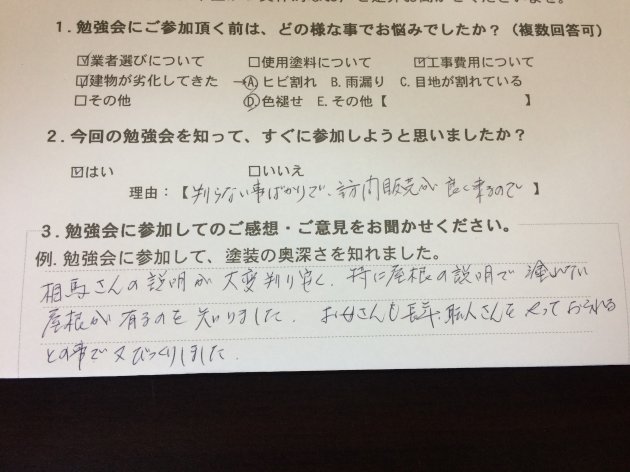 1.勉強会にご参加頂く前は、どの様な事でお悩みでしたか?(複数回答可)
☑業者選びについて □使用塗料について ☑工事費用について
☑建物が劣化してきた→Ⓐヒビ割れ B.雨漏り C.目地が割れている
□その他 Ⓓ色褪せ E.その他【 】
2.今回の勉強会を知って、すぐに参加しようと思いましたか?
☑はい □いいえ
理由:【判らない事ばかりで、訪問販売が良く来るので】
3.勉強会に参加してのご感想・ご意見をお聞かせください。
例.勉強会に参加して、塗装の奥深さを知れました。
相馬さんの説明が大変判り安く、特に屋根の説明で塗れない
屋根が有るのを知りました。お父さんも長年、職人さんをやっておられる
との事で又びっくりしました。